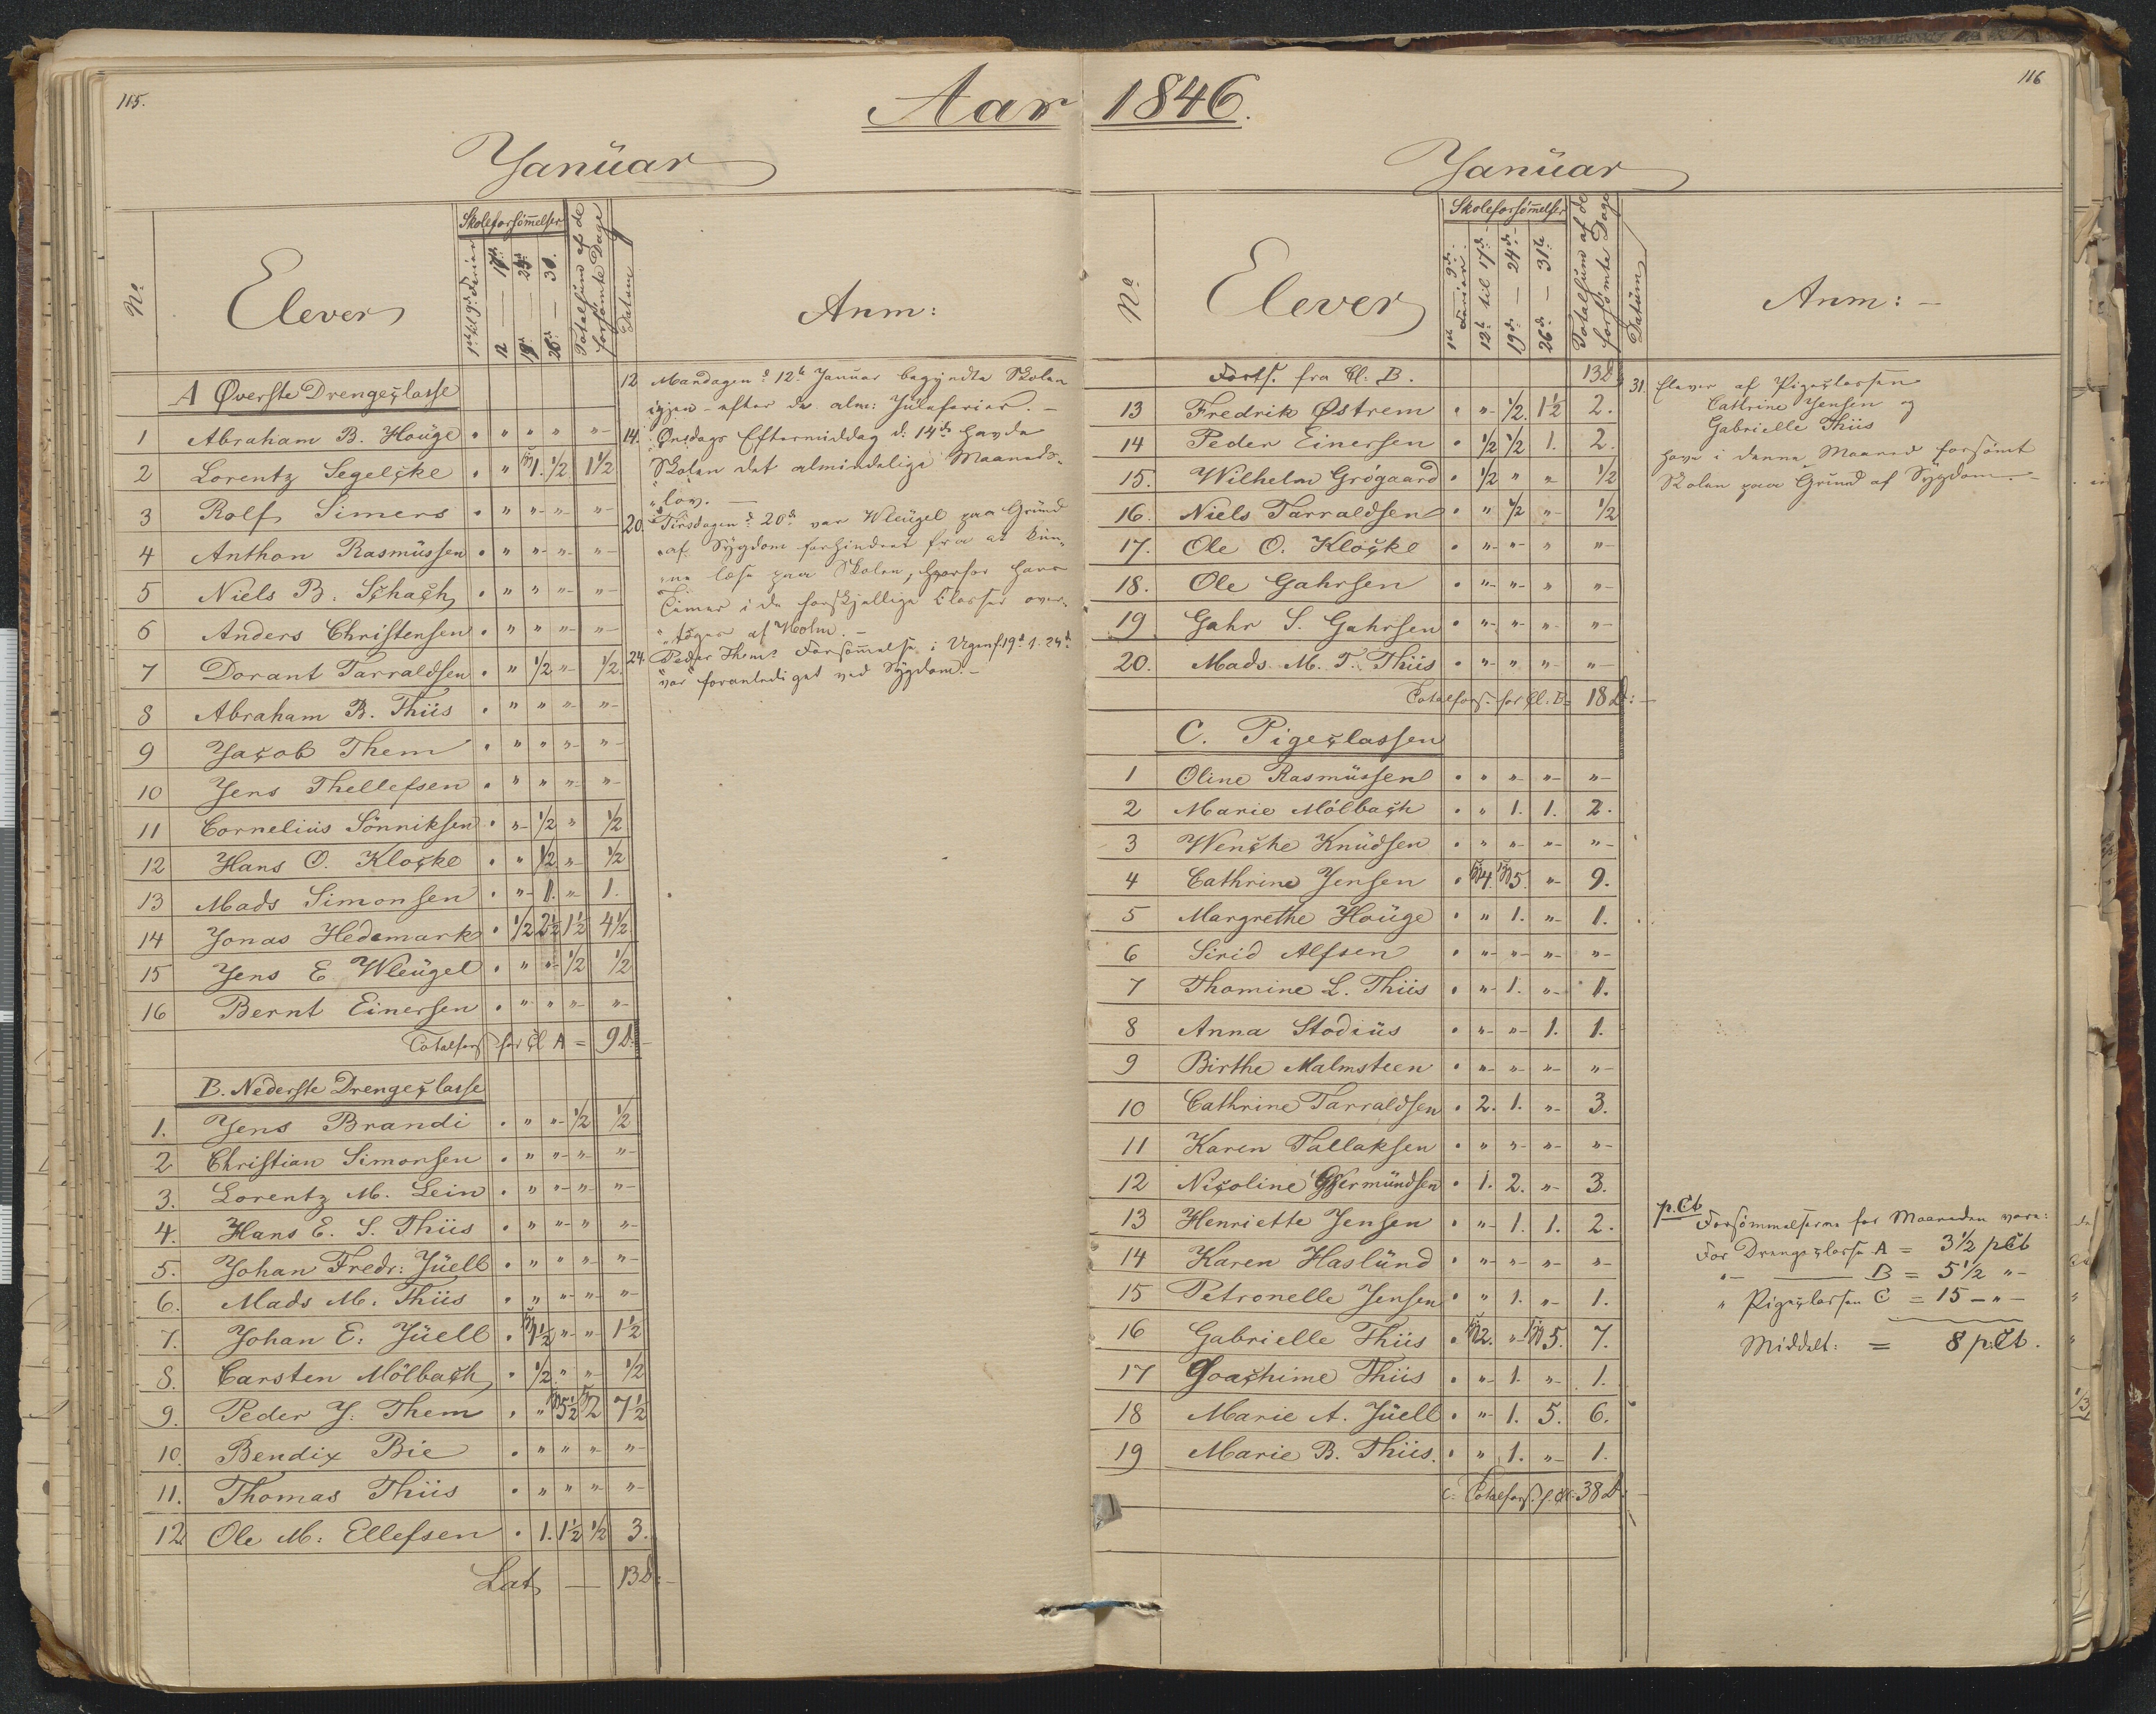 115.
Aar 1846.
116
Januar
Skoleforsømmelser
No
Elever
1ste til 9de Ferier
12 — 17de
19 — 24de
26 — 31.
Totalsum af de forsømte Dage
Datum
Anm:
A Øverste Drengeclasse
1 Abraham B. Houge • " " " "
2 Lorentz Segelcke • " 1. 1/2 1 1/2
3 Rolf Simers • " " " "
4 Anthon Rasmussen • " " " "
5 Niels B. Schach • " " " "
6 Anders Christensen • " " " "
7 Dorant Tarraldsen • " 1/2 " 1/2.
8 Abraham B. Thiis • " " " "
9 Jacob Them • " " " "
10 Jens Thellefsen • " " " "
11 Cornelius Sönniksen • " 1/2 " 1/2
12 Hans O. Klocke • " 1/2 " 1/2
13 Mads Simonsen • " 1. " 1.
14 Jonas Hedemark • 1/2 2 1/2 1 1/2 4 1/2
15 Jens E Wleugel • " " 1/2 1/2
16 Bernt Einersen • " " " "
Totalfors for Cl A = 9 D:
B. Nederste Drengeclasse
1. Jens Brandi • " " 1/2 1/2
2 Christian Simonsen • " " " "
3. Lorentz M. Lein • " " " "
4. Hans E. S. Thiis • " " " "
5. Johan Fredr: Juell • " " " "
6. Mads M. Thiis • " " " "
7. Johan E: Juell • 1 1/2 " " 1 1/2
8. Carsten Mölbach • 1/2 " " 1/2
9. Peder J. Them • " 5 1/2 2 7 1/2
10. Bendix Bie • " " " "
11. Thomas Thiis • " " " "
12 Ole M: Ellefsen • 1. 1 1/2 1/2 3.
Lat — 13 D:
12 Mandagen d. 12te Januar begyndte Skolen
igjen efter de alm: Juleferier. —
14. Onsdags Eftermiddag d: 14de havde
Skolen det almindelige Maaneds-
"lov. —
20. Tirsdagen d. 20de var Wleugel paa Grund
"af Sygdom forhindret fra at kun-
"ne læse paa Skolen, hvorfor hans
Timer i de forskjellige Classer over-
"toges af Holm. —
24. Peder Thems Forsømmelse i Ugen f. 19de t. 24de
"var foranlediget ved Sygdom. —
Januar
Skoleforsømmelser
No
Elever
1ste — 9de Ferier
12te til 17de
19de — 24de
26de — 31te
Totalsum af de forsømte Dage
Datum
Anm: —
Forts. fra Cl: B. 13 D
13 Fredrik Østrem • " 1/2. 1 1/2 2.
14 Peder Einersen • 1/2 1/2 1. 2.
15. Wilhelm Grøgaard • 1/2 " " 1/2
16. Niels Tarraldsen • " 1/2 " 1/2
17. Ole O. Klocke • " " " "
18. Ole Gahrsen • " " " "
19 Gahr S. Gahrsen • " " " "
20. Mads M. T. Thiis • " " " "
Totalfors. for Cl. B = 18 D: —
C. Pigeclassen
1 Oline Rasmussen • " " " "
2 Marie Mölbach • " 1. 1. 2.
3 Wencke Knudsen • " " " "
4 Cathrine Jensen • 4. 5. " 9.
5 Margrethe Houge • " 1. " 1.
6 Sirid Alfsen • " " " "
7 Thomine L. Thiis • " 1. " 1.
8 Anna Stodius • " " 1. 1.
9 Birthe Malmsteen • " " " "
10 Cathrine Tarraldsen • 2. 1. " 3.
11 Karen Tallaksen • " " " "
12 Nicoline Germundsen • 1. 2. " 3.
13 Henriette Jensen • " 1. 1. 2.
14 Karen Haslund • " " " "
15 Petronelle Jensen • " 1. " 1.
16 Gabrielle Thiis • 2. " 5. 7.
17 Joachime Thiis • " 1. " 1.
18 Marie A. Juell • " 1. 5. 6.
19 Marie B. Thiis. • " 1. " 1.
C. Totalfors. f. Cl: 38 D.
31. Elever af Pigeclassen
Cathrine Jensen og
Gabrielle Thiis
have i denne Maaned forsømt
Skolen paa Grund af Sygdom. —
p.Ct Forsømmelserne for Maaneden vare:
For Drengeclasse A = 3 1/2 pCt
" — B = 5 1/2 "
" Pigeclassen C = 15 — " —
Middelt: = 8 p.Ct.